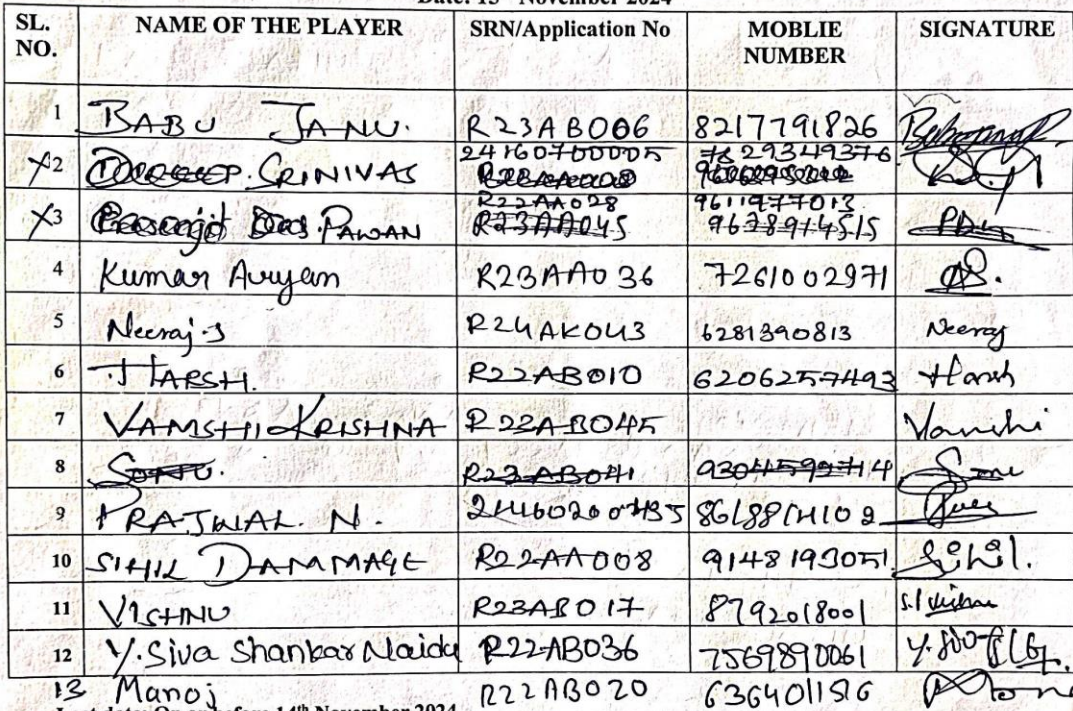 Date: 13 November 2024
SL. NO. NAME OF THE PLAYER SRN/Application No MOBLIE NUMBER SIGNATURE
1 BABU JANU. R23AB006 8217791826
2 SRINIVAS 24160700005 7829349376
3 PAWAN R22AA028 9611977013
R23AA045 9638914515
4 Kumar Auyan R23AA036 7261002971
5 Neeraj.S R24AK043 6281390813 Neeraj
6 HARSH. R22AB010 6206257493 Harsh
7 VAMSHI KRISHNA R22AB045 Vamshi
8 SONU. R23AB041 9304599714 Sonu
9 PRAJWAL. N. 8618814102
10 SIHIL DAMMAGE R22AA008 9148193051 Sihil.
11 VISHNU R23AB017 8792018001
12 Y. Siva Shankar Naidu R22AB036 7569890061
13 Manoj R22AB020 6364011516
Last date: On or before 14th November 2024